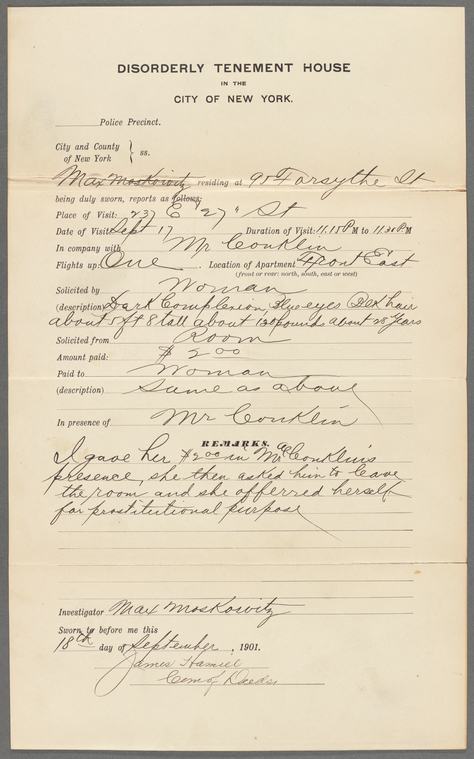 DISORDERLY TENEMENT HOUSE
IN THE
CITY OF NEW YORK.
Police Precinct.
City and County
of New York } ss.
Max Moskowitz residing at 95 Forsythe St
being duly sworn, reports as follows:
Place of Visit: 237 E 27" St
Date of Visit: Sept 17 Duration of Visit: 11.15 P M to 11.30 P M
In company with Mr Conklin
Flights up: One. Location of Apartment Front East
(front or rear: north, south, east or west)
Solicited by Woman
(description) Dark Complexion, Blue eyes Dark hair
about 5 ft 8 tall about 130 pounds about 28 years
Solicited from Room
Amount paid: $ 2.00
Paid to Woman
(description) Same as above
In presence of Mr Conklin
REMARKS.
I gave her $2.00 in Mr Conklin's
presence, she then asked him to leave
the room and she offerred herself
for prostitutional purpose
Investigator Max Moskowitz
Sworn to before me this
18th day of September, 1901.
James Hamiel
Com of Deeds